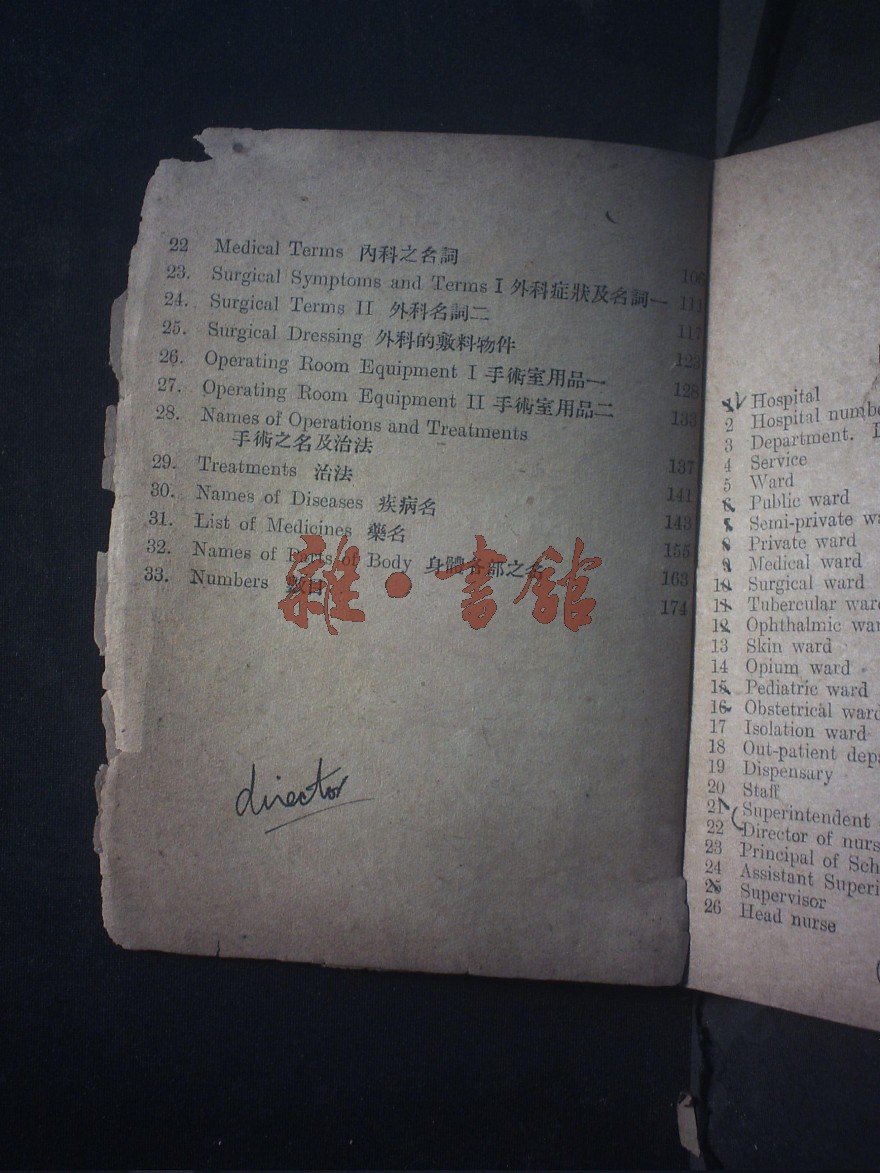 22 Medical Terms 內科之名詞 106
23. Surgical Symptoms and Terms I 外科症狀及名詞一 111
24. Surgical Terms II 外科名詞二 117
25. Surgical Dressing 外科的敷料物件 123
26. Operating Room Equipment I 手術室用品一 128
27. Operating Room Equipment II 手術室用品二 133
28. Names of Operations and Treatments
手術之名及治法 137
29. Treatments 治法 141
30. Names of Diseases 疾病名 143
31. List of Medicines 藥名 155
32. Names of Parts of Body 身體各部之名 163
33. Numbers 數目 174
雜·書館
director
1 Hospital
2 Hospital numbe
3 Department.
4 Service
5 Ward
6 Public ward
7 Semi-private wa
8 Private ward
9 Medical ward
10 Surgical ward
11 Tubercular ward
12 Ophthalmic war
13 Skin ward
14 Opium ward
15 Pediatric ward
16 Obstetrical ward
17 Isolation ward
18 Out-patient depa
19 Dispensary
20 Staff
21 Superintendent
22 Director of nurs
23 Principal of Sch
24 Assistant Superi
25 Supervisor
26 Head nurse